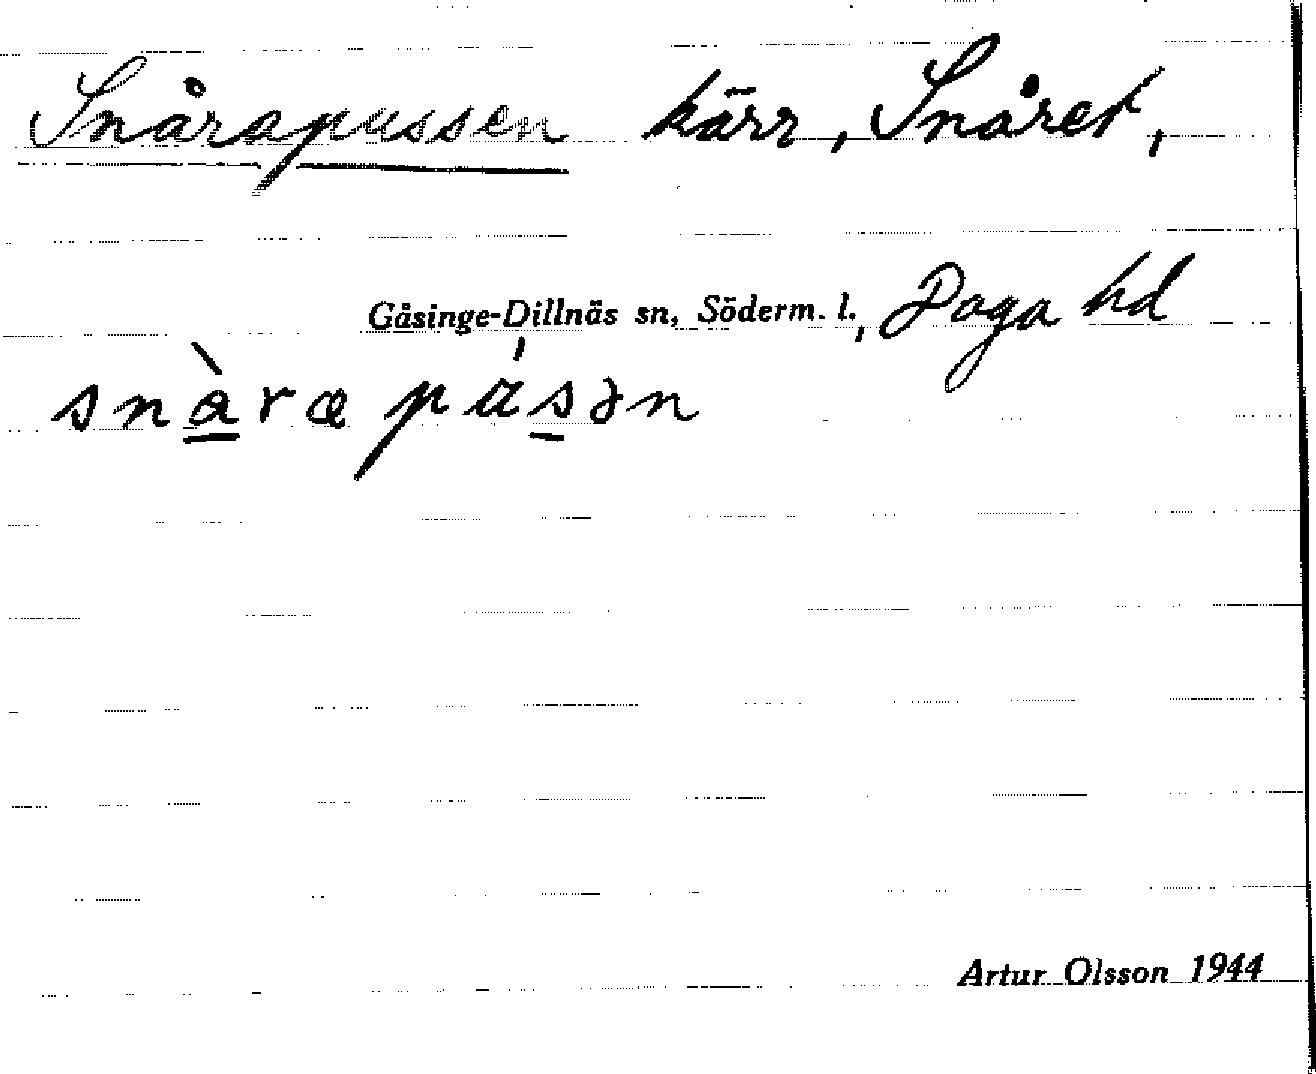 Snårapussen kärr, Snåret,
Gåsinge-Dillnäs sn, Söderm. l., Daga hd
Artur Olsson 1944